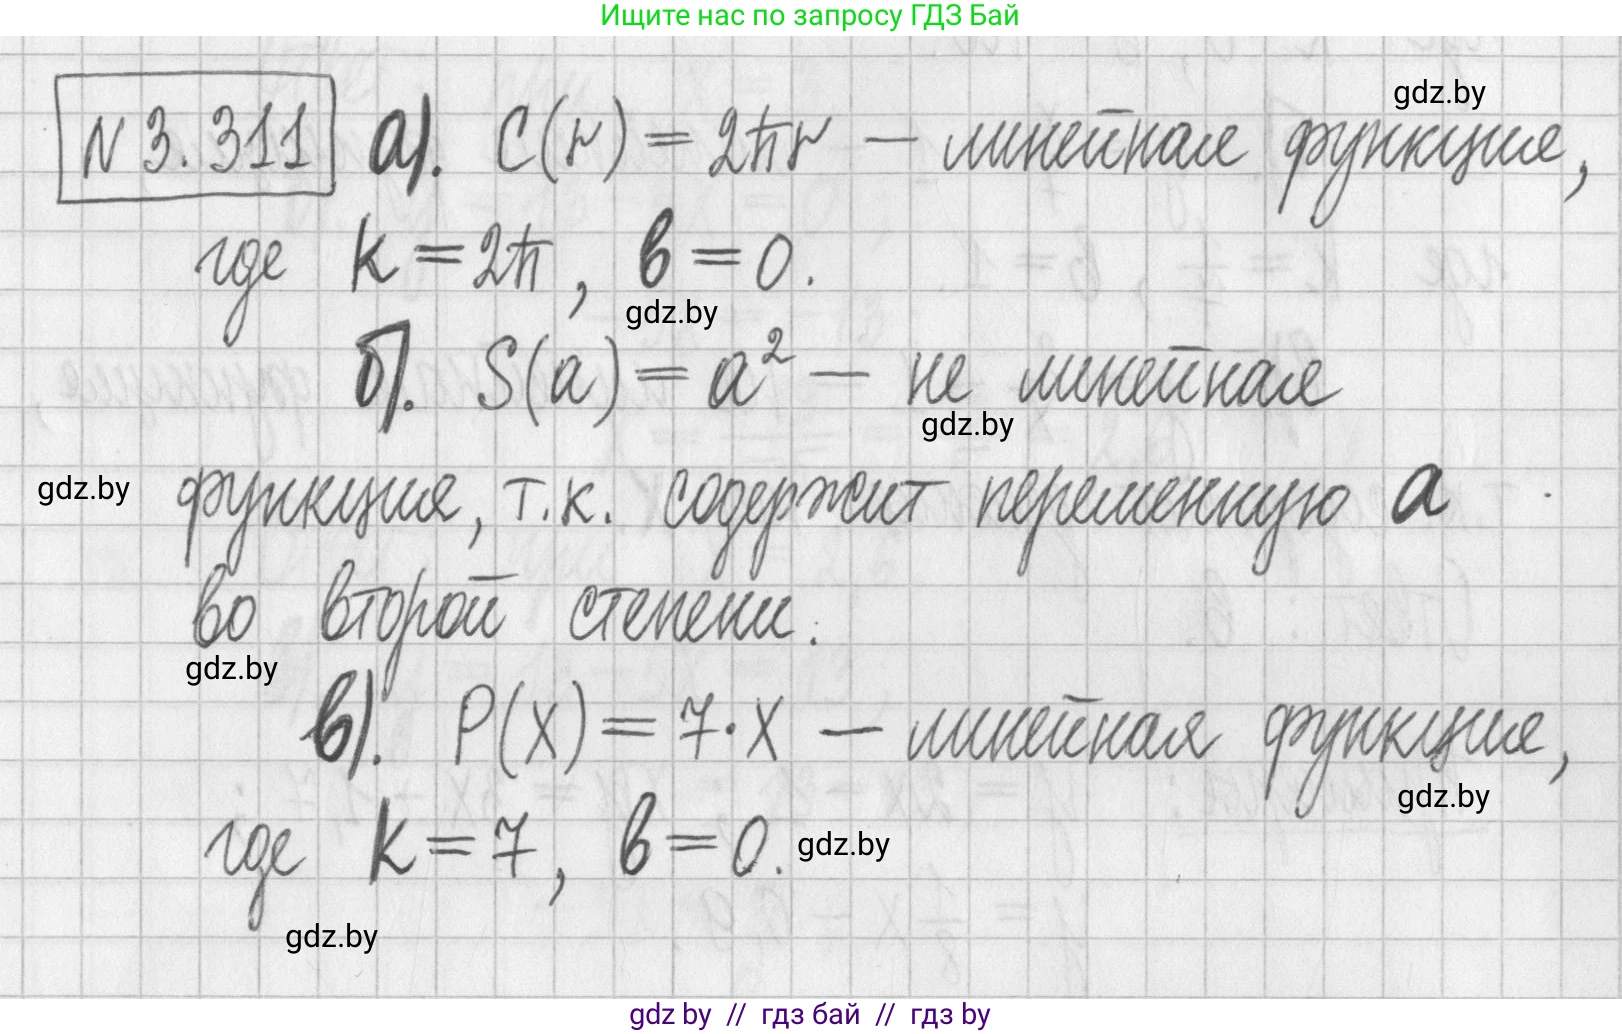 Ищите нас по запросу ГДЗ Бай
gdz.by
N 3.311 а). C(r) = 2πr — линейная функция,
где k = 2π, в = 0.
gdz.by
б). S(a) = a² — не линейная
gdz.by
gdz.by
функция, т.к. содержит переменную а
во второй степени.
gdz.by
в). P(x) = 7·x — линейная функция,
gdz.by
где k = 7, в = 0.
gdz.by
gdz.by
gdz by // гдз бай // гдз by